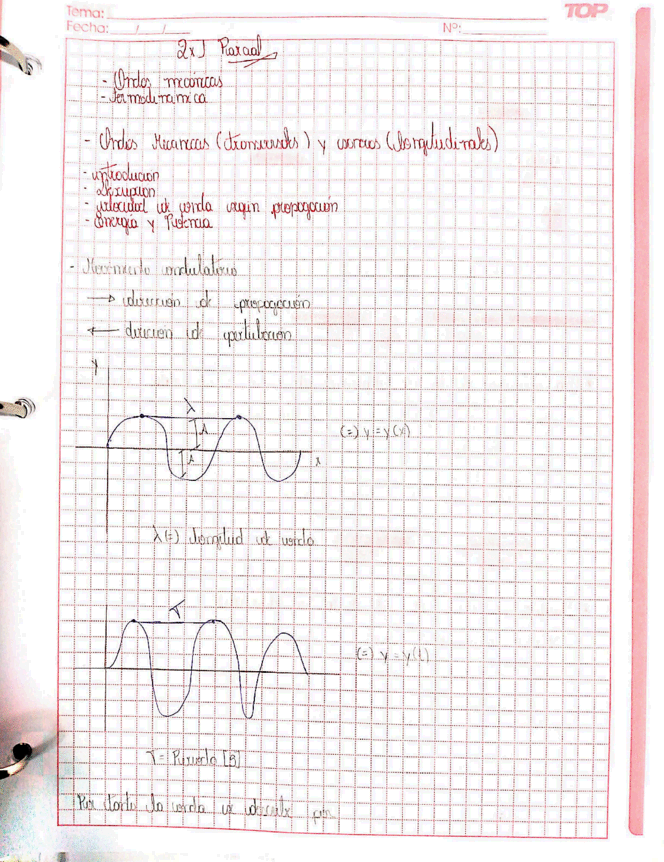 Tema:
TOP
Fecha: / /
Nº:
2x1 Parcial
- Ondas mecánicas
- Termodinamica
- Ondas Mecanicas (transversales) y (longitudinales)
- introduccion
- descripcion
- velocidad de onda segun propagación
- Energía y Potencia
- Movimiento ondulatorio
→ dirección de propagación
← dirección de perturbación
y
λ
A
(=) y = y(x)
A
x
λ (=) longitud de onda
T
(=) y = y(t)
T = Periodo [s]
Por donde la onda se describe por